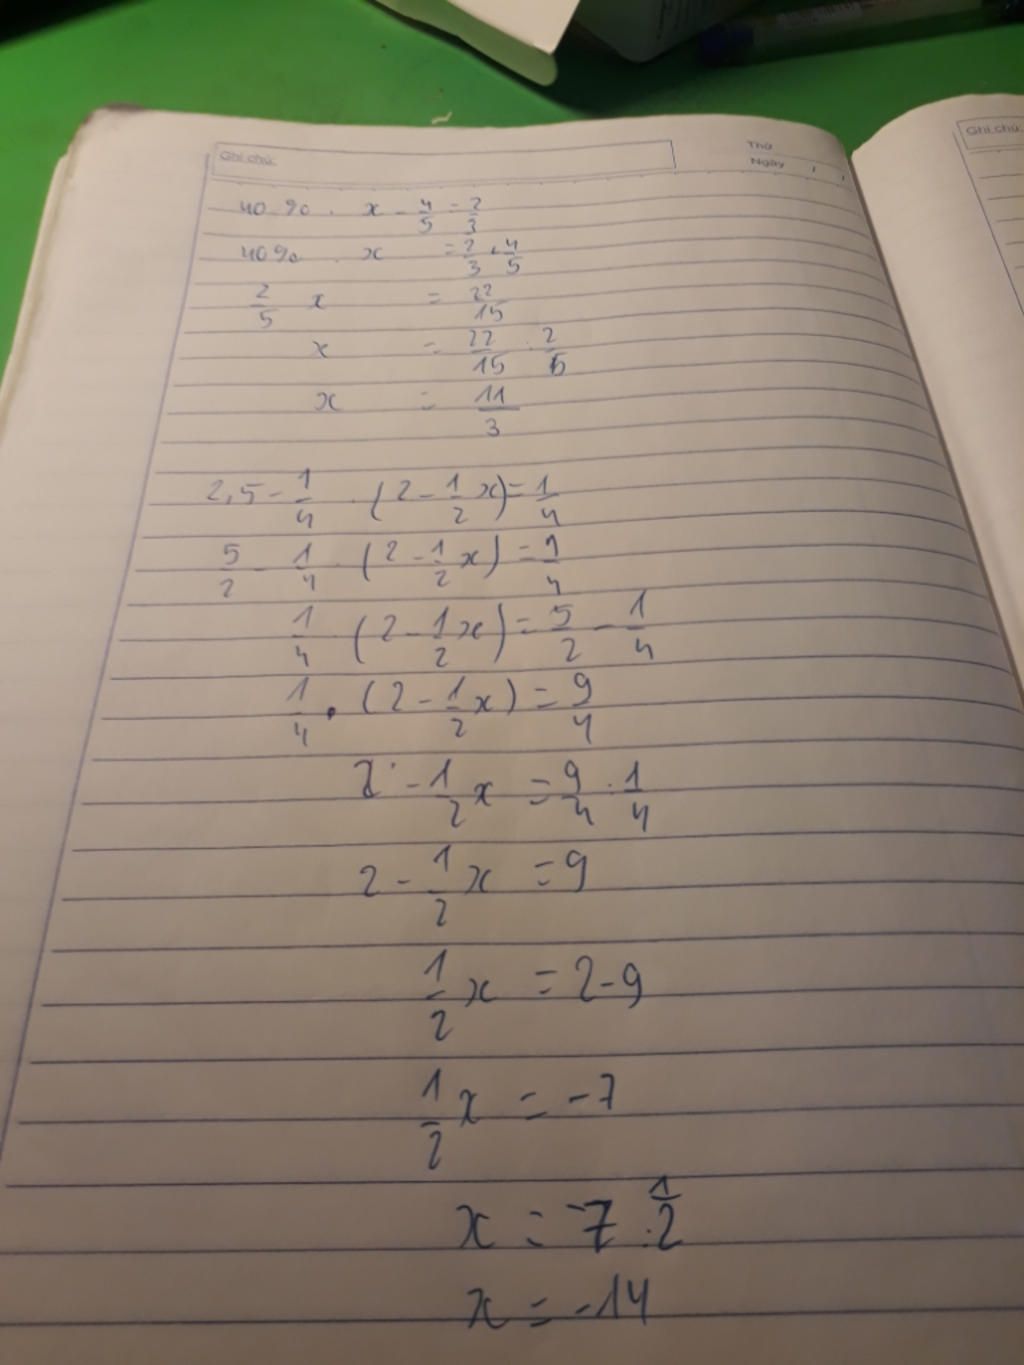 Ghi chú:
Thứ
Ngày / /
Ghi chú:
40 % . x - 4/5 = 2/3
40% . x = 2/3 + 4/5
2/5 x = 22/15
x = 22/15 : 2/5
x = 11/3
2,5 - 1/4 . (2 - 1/2 x) = 1/4
5/2 - 1/4 . (2 - 1/2 x) = 1/4
1/4 . (2 - 1/2 x) = 5/2 - 1/4
1/4 . (2 - 1/2 x) = 9/4
2 - 1/2 x = 9/4 : 1/4
2 - 1/2 x = 9
1/2 x = 2 - 9
1/2 x = -7
x = -7 : 1/2
x = -14